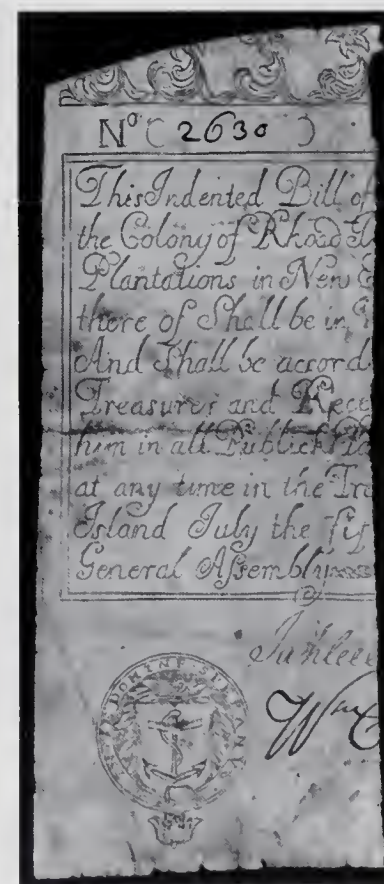 No ( 2630 )
This Indented Bill of
the Colony of Rhoad
Plantations in New
there of Shall be in
And Shall be accord
Treasurer and Rece
him in all Publick
at any time in the Tre
Island July the
General Assembly
Wm